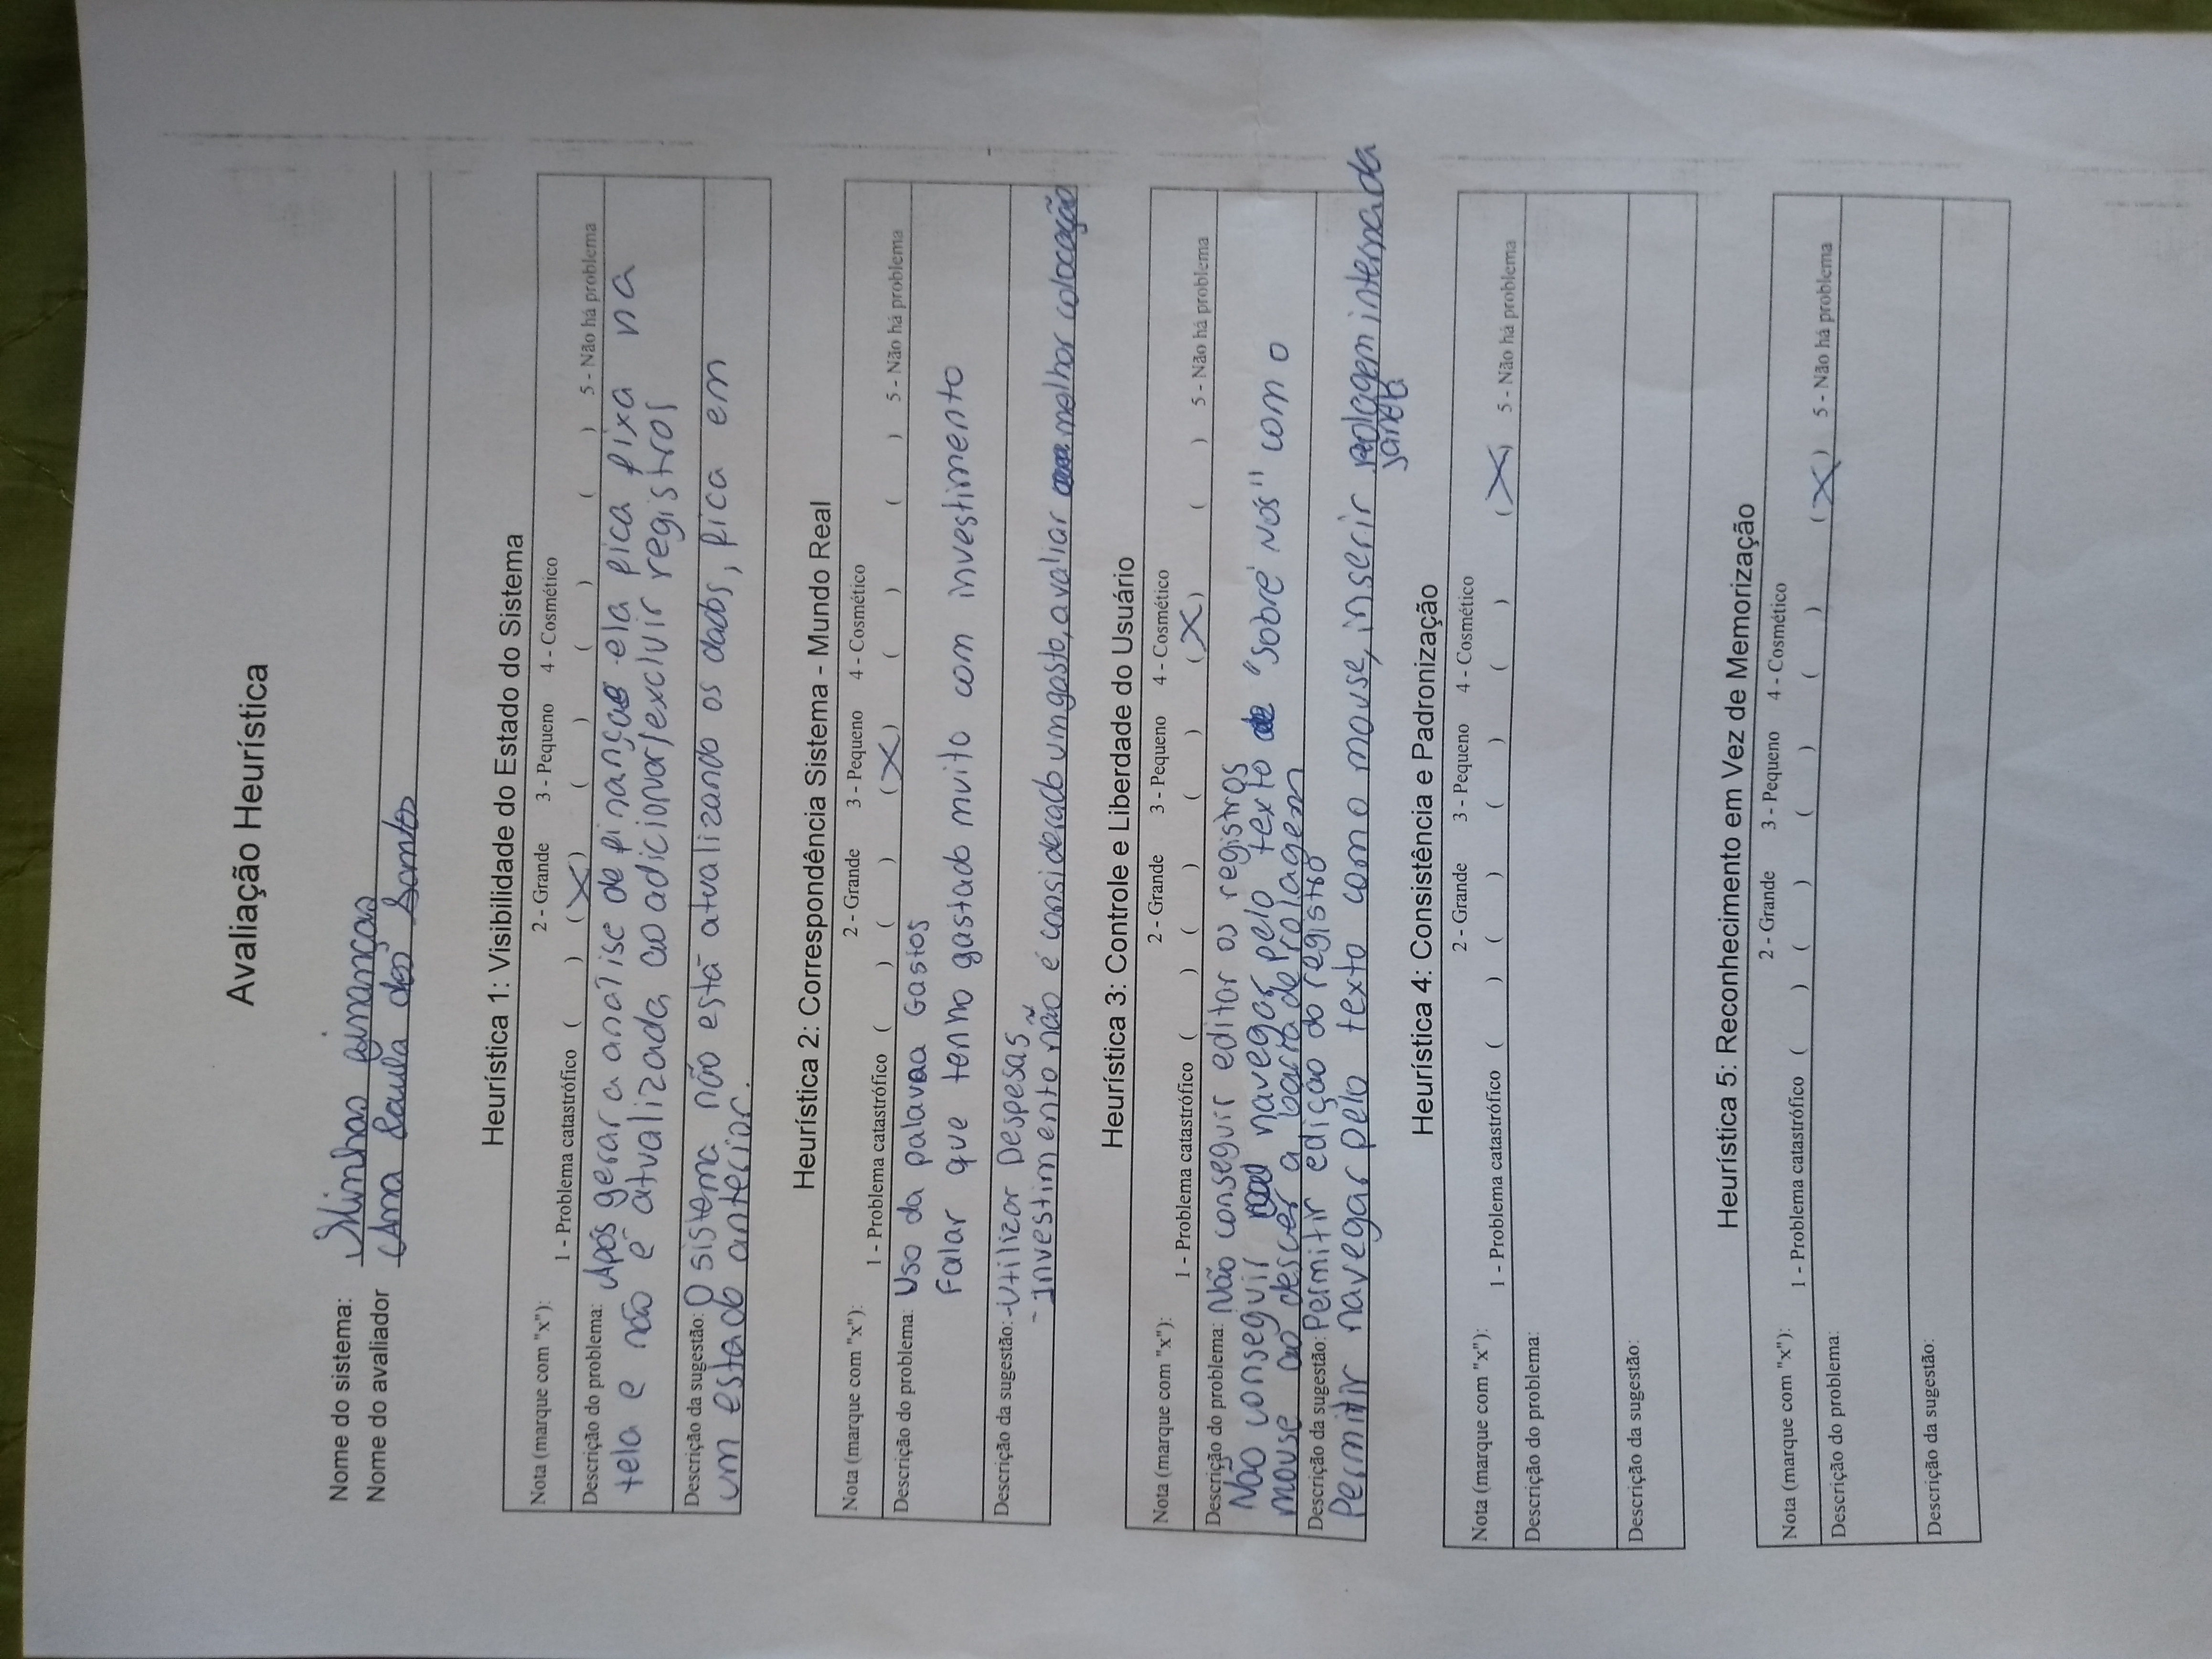 Avaliação Heurística
Nome do sistema: Minhas finanças
Nome do avaliador Ana Paula dos Santos
Heurística 1: Visibilidade do Estado do Sistema
Nota (marque com "x"):
1 - Problema catastrófico 2 - Grande 3 - Pequeno 4 - Cosmético 5 - Não há problema
( ) (X) ( ) ( ) ( )
Descrição do problema: Após gerar a analise de finanças ela fica fixa na
tela e não é atualizada ao adicionar/excluir registros
Descrição da sugestão: O sistema não está atualizando os dados, fica em
um estado anterior.
Heurística 2: Correspondência Sistema - Mundo Real
Nota (marque com "x"):
1 - Problema catastrófico 2 - Grande 3 - Pequeno 4 - Cosmético 5 - Não há problema
( ) ( ) (X) ( ) ( )
Descrição do problema: Uso da palavra Gastos
Falar que tenho gastado muito com investimento
Descrição da sugestão: -Utilizar Despesas
- Investimento não é considerado um gasto, avaliar melhor colocação
Heurística 3: Controle e Liberdade do Usuário
Nota (marque com "x"):
1 - Problema catastrófico 2 - Grande 3 - Pequeno 4 - Cosmético 5 - Não há problema
( ) ( ) ( ) (X) ( )
Descrição do problema: Não conseguir editar os registros
Não conseguir navegar pelo texto de "Sobre Nós" com o
mouse ao descer a barra de rolagem
Descrição da sugestão: Permitir edição do registro
Permitir navegar pelo texto com o mouse, inserir rolagem interna da
janela
Heurística 4: Consistência e Padronização
Nota (marque com "x"):
1 - Problema catastrófico 2 - Grande 3 - Pequeno 4 - Cosmético 5 - Não há problema
( ) ( ) ( ) ( ) (X)
Descrição do problema:
Descrição da sugestão:
Heurística 5: Reconhecimento em Vez de Memorização
Nota (marque com "x"):
1 - Problema catastrófico 2 - Grande 3 - Pequeno 4 - Cosmético 5 - Não há problema
( ) ( ) ( ) ( ) (X)
Descrição do problema:
Descrição da sugestão: